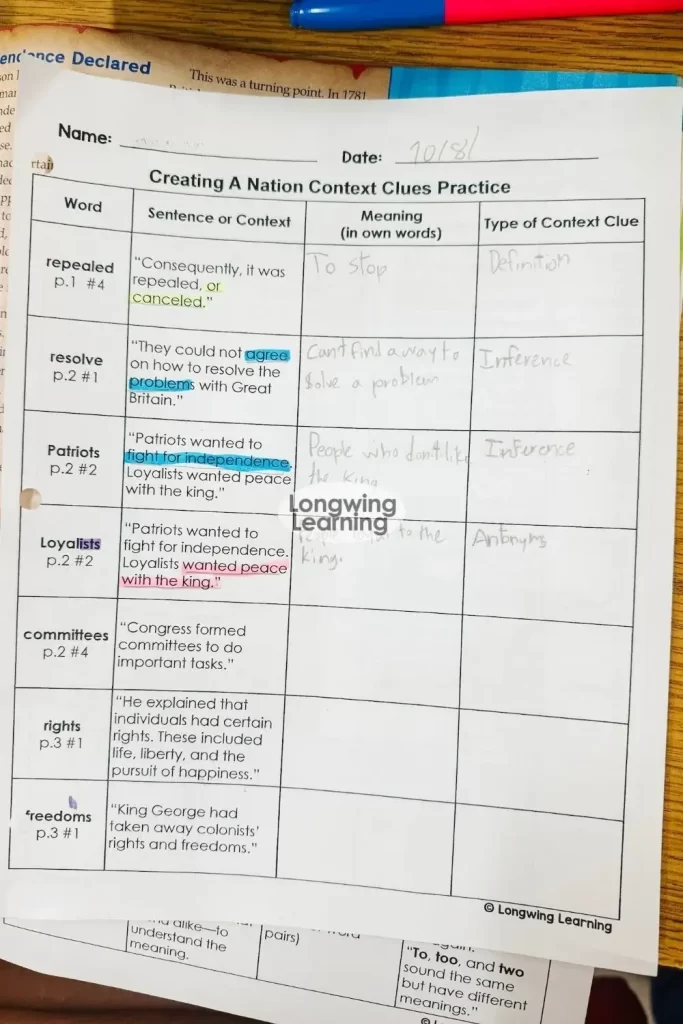 endence Declared
This was a turning point. In 1781
Name:
Date: 10/8/
Creating A Nation Context Clues Practice
Word
Sentence or Context
Meaning
(in own words)
Type of Context Clue
repealed
p.1 #4
"Consequently, it was
repealed, or
canceled."
To stop
Definition
resolve
p.2 #1
"They could not agree
on how to resolve the
problems with Great
Britain."
Can't find a way to
solve a problem
Inference
Patriots
p.2 #2
"Patriots wanted to
fight for independence.
Loyalists wanted peace
with the king."
People who don't like
the king
Inference
Longwing
Learning
Loyalists
p.2 #2
"Patriots wanted to
fight for independence.
Loyalists wanted peace
with the king."
to the
king.
Antonyms
committees
p.2 #4
"Congress formed
committees to do
important tasks."
rights
p.3 #1
"He explained that
individuals had certain
rights. These included
life, liberty, and the
pursuit of happiness."
freedoms
p.3 #1
"King George had
taken away colonists'
rights and freedoms."
© Longwing Learning
alike—to
understand the
meaning.
pairs)
"To, too, and two
sound the same
but have different
meanings."